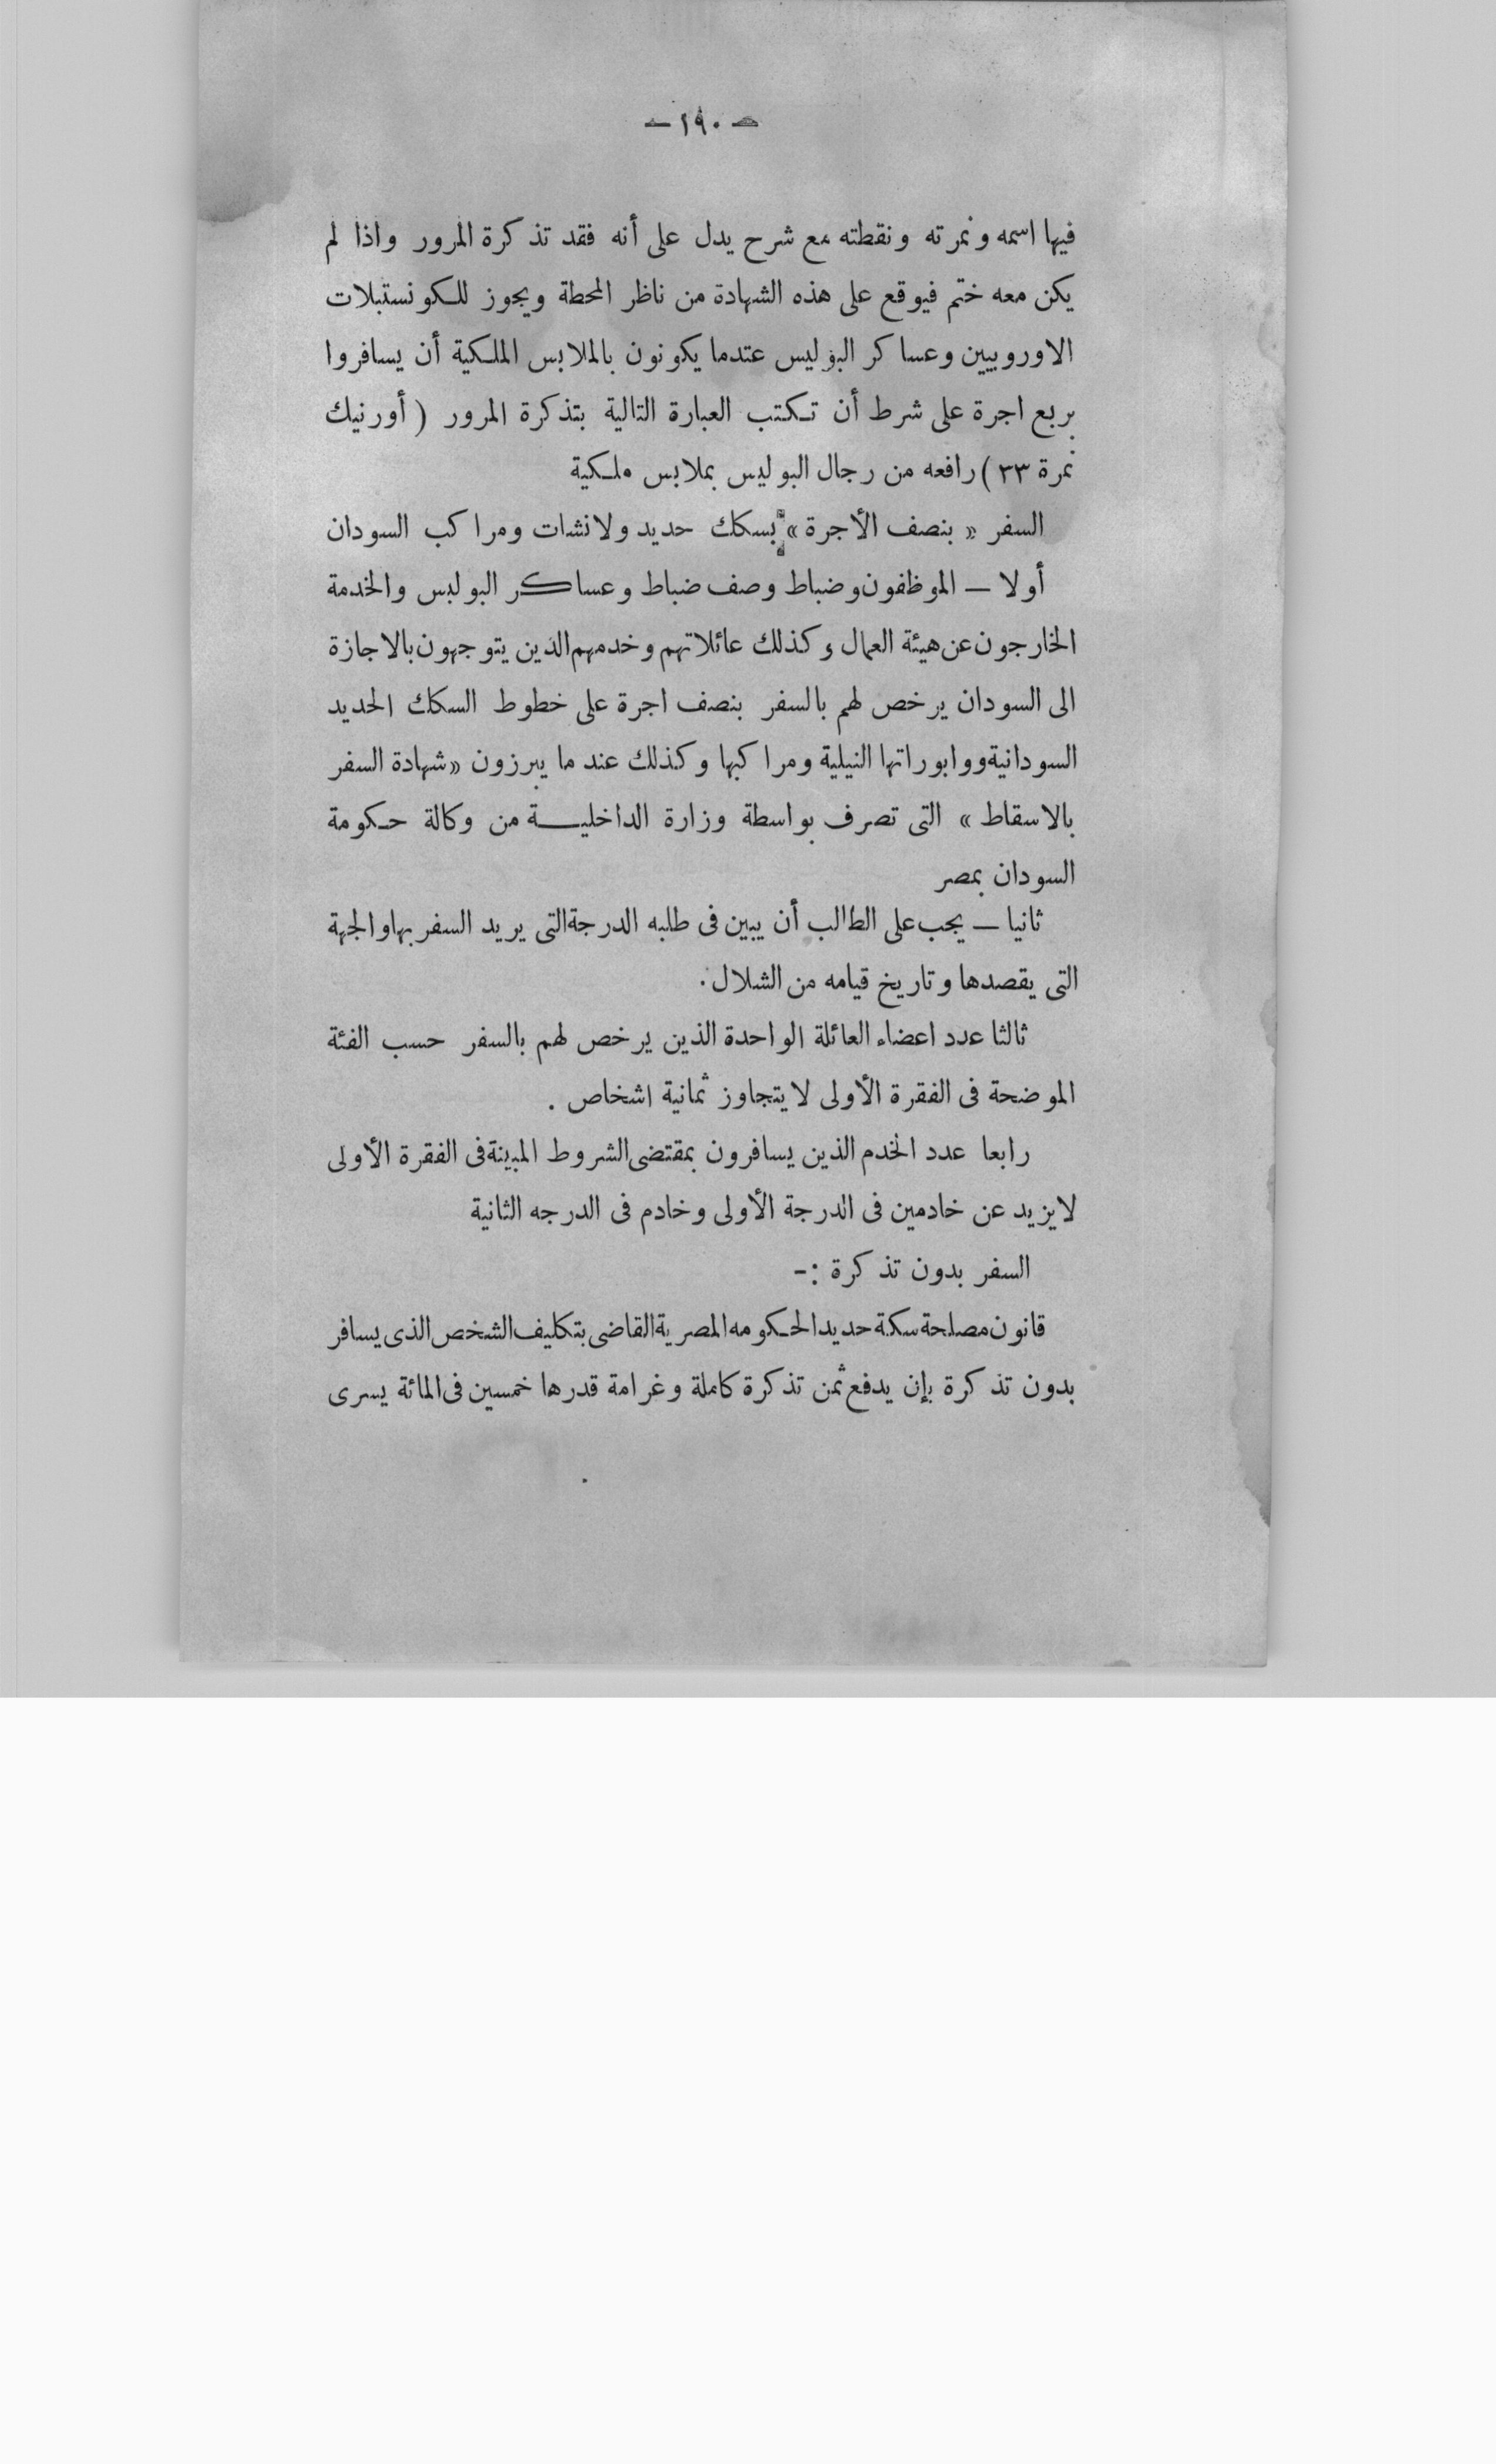 — ١٩٠ —
فيها اسمه ونمرته ونقطته مع شرح يدل على أنه فقد تذكرة المرور واذا لم
يكن معه ختم فيوقع على هذه الشهادة من ناظر المحطة ويجوز للكونستبلات
الاوروبيين وعساكر البوليس عتدما يكونون بالملابس الملكية أن يسافروا
بربع اجرة على شرط أن تكتب العبارة التالية بتذكرة المرور ( أورنيك
نمرة ٣٣ ) رافعه من رجال البوليس بملابس ملكية
السفر « بنصف الأجرة » بسكك حديد ولانشات ومراكب السودان
أولا — الموظفون وضباط وصف ضباط وعساكر البوليس والخدمة
الخارجون عن هيئة العمال وكذلك عائلاتهم وخدمهم الذين يتوجهون بالاجازة
الى السودان يرخص لهم بالسفر بنصف اجرة على خطوط السكك الحديد
السودانية ووابوراتها النيلية ومراكبها وكذلك عند ما يبرزون «شهادة السفر
بالاسقاط » التى تصرف بواسطة وزارة الداخلية من وكالة حكومة
السودان بمصر
ثانيا — يجب على الطالب أن يبين فى طلبه الدرجة التى يريد السفر بها والجهة
التى يقصدها وتاريخ قيامه من الشلال .
ثالثا عدد اعضاء العائلة الواحدة الذين يرخص لهم بالسفر حسب الفئة
الموضحة فى الفقرة الأولى لا يتجاوز ثمانية اشخاص .
رابعا عدد الخدم الذين يسافرون بمقتضى الشروط المبينة فى الفقرة الأولى
لا يزيد عن خادمين فى الدرجة الأولى وخادم فى الدرجه الثانية
السفر بدون تذكرة :-
قانون مصلحة سكة حديد الحكومه المصرية القاضى بتكليف الشخص الذى يسافر
بدون تذكرة بإن يدفع ثمن تذكرة كاملة وغرامة قدرها خمسين فى المائة يسرى